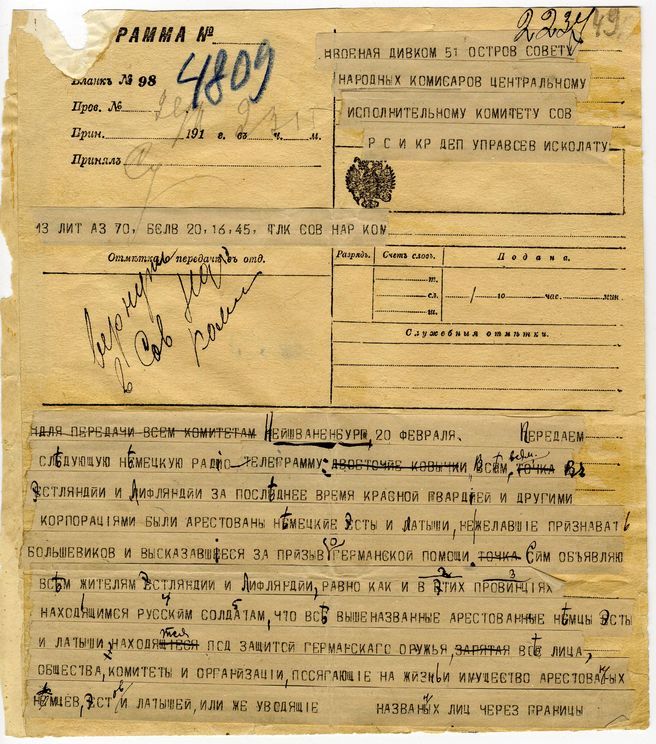 2237 49
РАММА №
4809
Бланкъ № 98
Пров. №
Прин. 191 г. въ ч. м.
Принялъ
ВОЕНАЯ ДИВКОМ 51 ОСТРОВ СОВЕТУ
НАРОДНЫХ КОМИСАРОВ ЦЕНТРАЛЬНОМУ
ИСПОЛНИТЕЛЬНОМУ КОМИТЕТУ СОВ
Р С И КР ДЕП УПРАВСЕВ ИСКОЛАТУ
ИЗ ЛИТ АЗ 70, БЕЛВ 20,16,45, ТЛК СОВ НАР КОМ
Отмѣтка передачи въ отд.
Разрядъ. Счетъ словъ. Подана.
т.
сл.
ш.
/ го час. мин.
Служебныя отмѣтки.
вернуть
в Сов нар
ком
ДЛЯ ПЕРЕДАЧИ ВСЕМ КОМИТЕТАМ НЕЙШВАНЕНБУРГ, 20 ФЕВРАЛЯ. ПЕРЕДАЕМ
СЛѢДУЮЩУЮ НѢМЕЦКУЮ РАДІО ТЕЛЕГРАММУ: ДВОЕТОЧИЕ КОВЫЧКИ ВСѢМ, всѣм. ТОЧКА Въ
ЭСТЛЯНДІИ И ЛИФЛЯНДІИ ЗА ПОСЛѢДНЕЕ ВРЕМЯ КРАСНОЙ ГВАРДІЕЙ И ДРУГИМИ
КОРПОРАЦІЯМИ БЫЛИ АРЕСТОВАНЫ НѢМЕЦКІЕ ЭСТЫ И ЛАТЫШИ, НЕЖЕЛАВШІЕ ПРИЗНАВАТЬ
БОЛЬШЕВИКОВ И ВЫСКАЗАВШІЕСЯ ЗА ПРИЗЫВ ГЕРМАНСКОЙ ПОМОЩИ. ТОЧКА СИМ ОБЪЯВЛЯЮ
ВСѢМ ЖИТЕЛЯМ ЭСТЛЯНДИИ И ЛИФЛЯНДІИ, РАВНО КАК И В ЭТИХ ПРОВИНЦІЯХ
НАХОДЯЩИМСЯ РУССКИМ СОЛДАТАМ, ЧТО ВСѢ ВЫШЕНАЗВАННЫЕ АРЕСТОВАННЫЕ НѢМЦЫ ЭСТЫ
И ЛАТЫШИ, НАХОДЯЩІЕСЯ тся ПОД ЗАЩИТОЙ ГЕРМАНСКАГО ОРУЖЬЯ, ЗАПЯТАЯ ВСѢ ЛИЦА,
ОБЩЕСТВА, КОМИТЕТЫ И ОРГАНІЗАЦІИ, ПОСЯГАЮЩІЕ НА ЖИЗНЬ И ИМУЩЕСТВО АРЕСТОВАНЫХ
НѢМЦЕВ, ЭСТОВ И ЛАТЫШЕЙ, ИЛИ ЖЕ УВОДЯЩІЕ НАЗВАНЫХ ЛИЦ ЧЕРЕЗ ГРАНИЦЫ